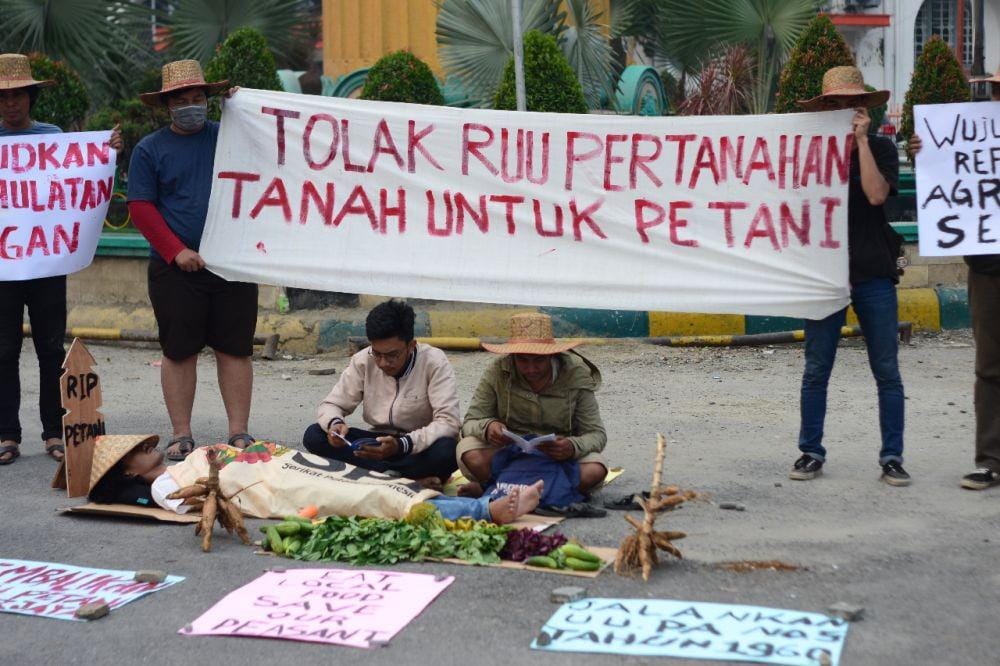 UDKAN
MULATAN
GAN
TOLAK RUU PERTANAHAN
TANAH UNTUK PETANI
WUJU
REF
AGR
SE
RIP
PETANI
Serikat
EAT
LOCAL
FOOD
SAVE
OUR
PEASANT
JALANKAN
UU.PA NO 5
TAHUN 1960